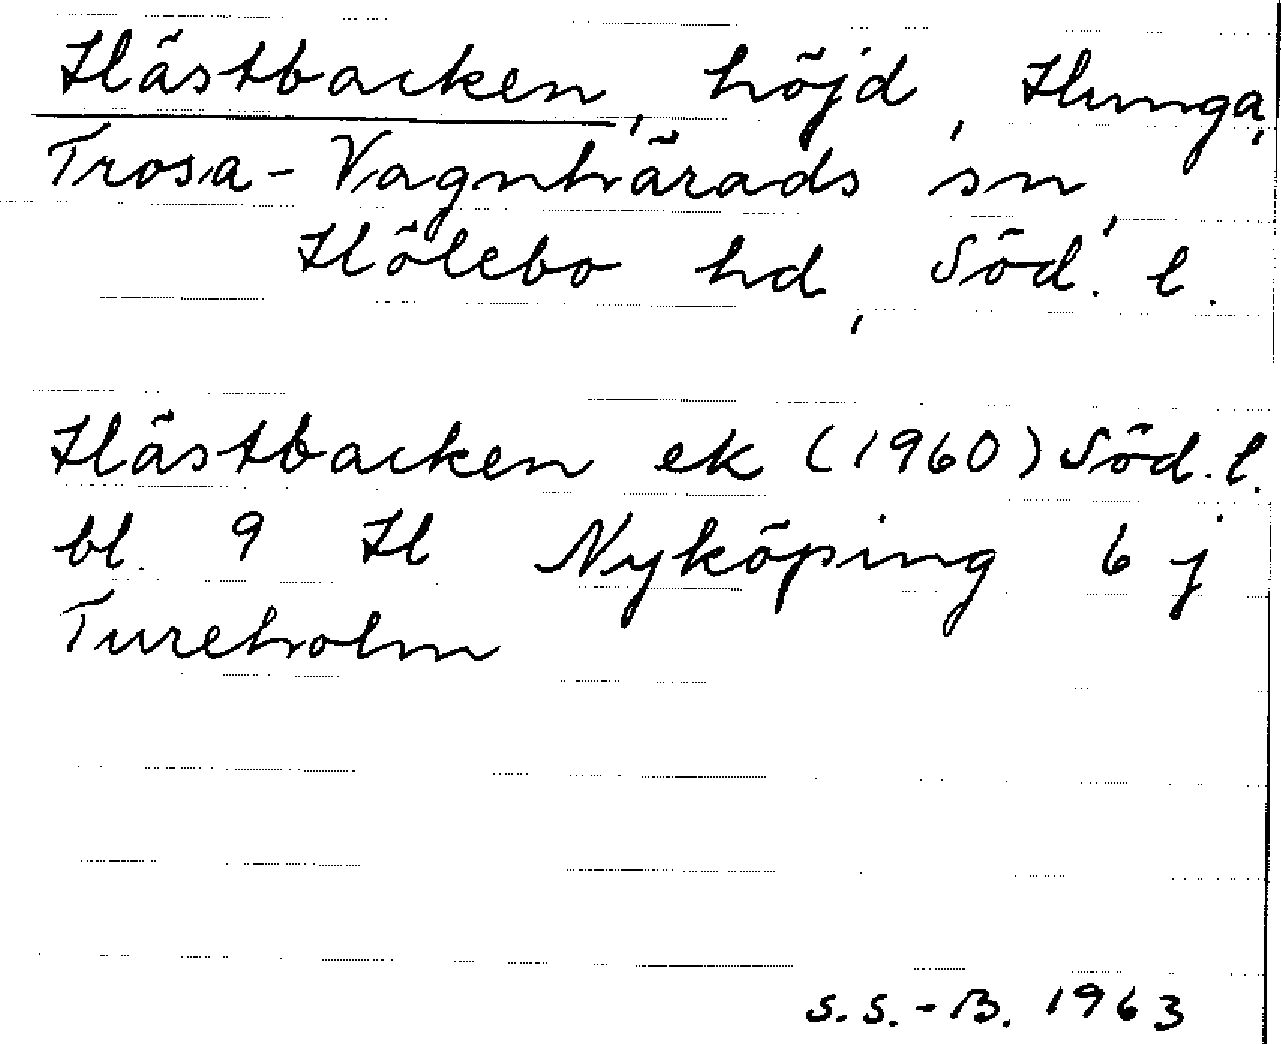 Hästbacken, höjd, Hunga,
Trosa-Vagnhärads sn,
Hölebo hd, Söd. l.
Hästbacken ek (1960) Söd. l.
bl. 9 H Nyköping 6 j
Tureholm
S.S.-B. 1963